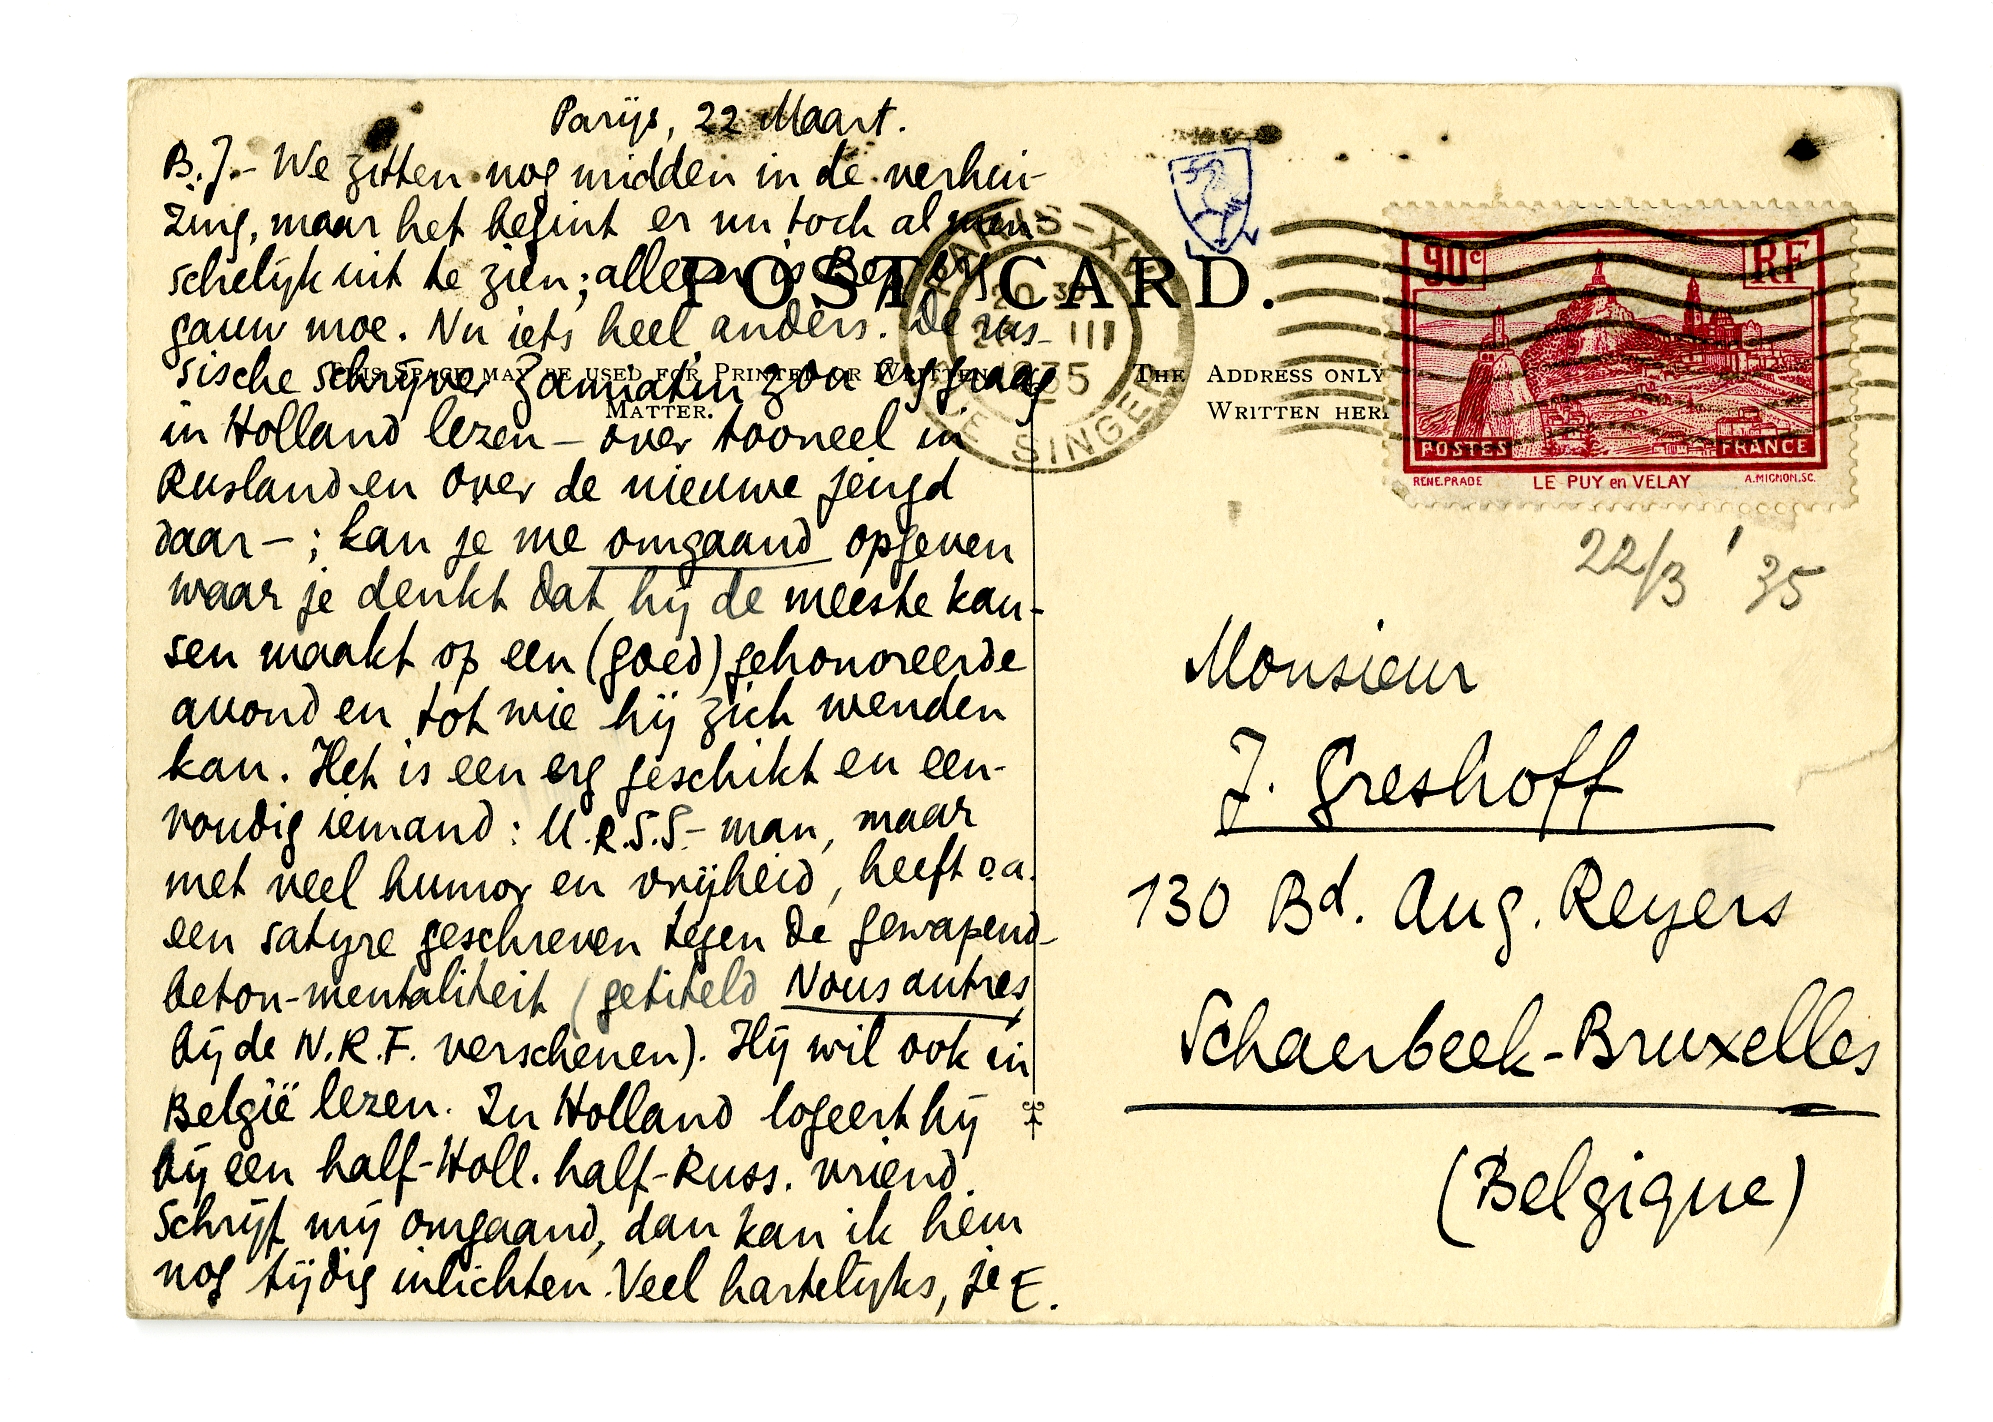 Parijs, 22 Maart.
B.J.- We zitten nog midden in de verhui-
zing, maar het begint er nu toch al men-
schelijk uit te zien; alleen is Bep
gauw moe. Nu iets heel anders. De rus-
sische schrijver Zamiatin zou graag
in Holland lezen — over tooneel in
Rusland en over de nieuwe jeugd
daar — ; kan je me omgaand opgeven
waar je denkt dat hij de meeste kan-
sen maakt op een (goed) gehonoreerde
avond en tot wie hij zich wenden
kan. Het is een erg geschikt en een-
voudig iemand: U.R.S.S.- man, maar
met veel humor en vrijheid, heeft o.a.
een satyre geschreven tegen de gewapend-
beton-mentaliteit (getiteld Nous autres
bij de N.R.F. verschenen). Hij wil ook in
België lezen. In Holland logeert hij
bij een half-Holl. half-Russ. vriend.
Schrijf mij omgaand, dan kan ik hem
nog tijdig inlichten. Veel hartelijks, je E.
POST CARD.
THIS SPACE MAY BE USED FOR PRINTED OR WRITTEN
MATTER.
THE ADDRESS ONLY
WRITTEN HER
PARIS-X
20 30
III
1935
SINGER
90c RF
POSTES FRANCE
RENE.PRADE LE PUY en VELAY A.MIGNON.SC.
22/3 '35
Monsieur
J. Greshoff
130 Bd. Aug. Reyers
Schaerbeek-Bruxelles
(Belgique)